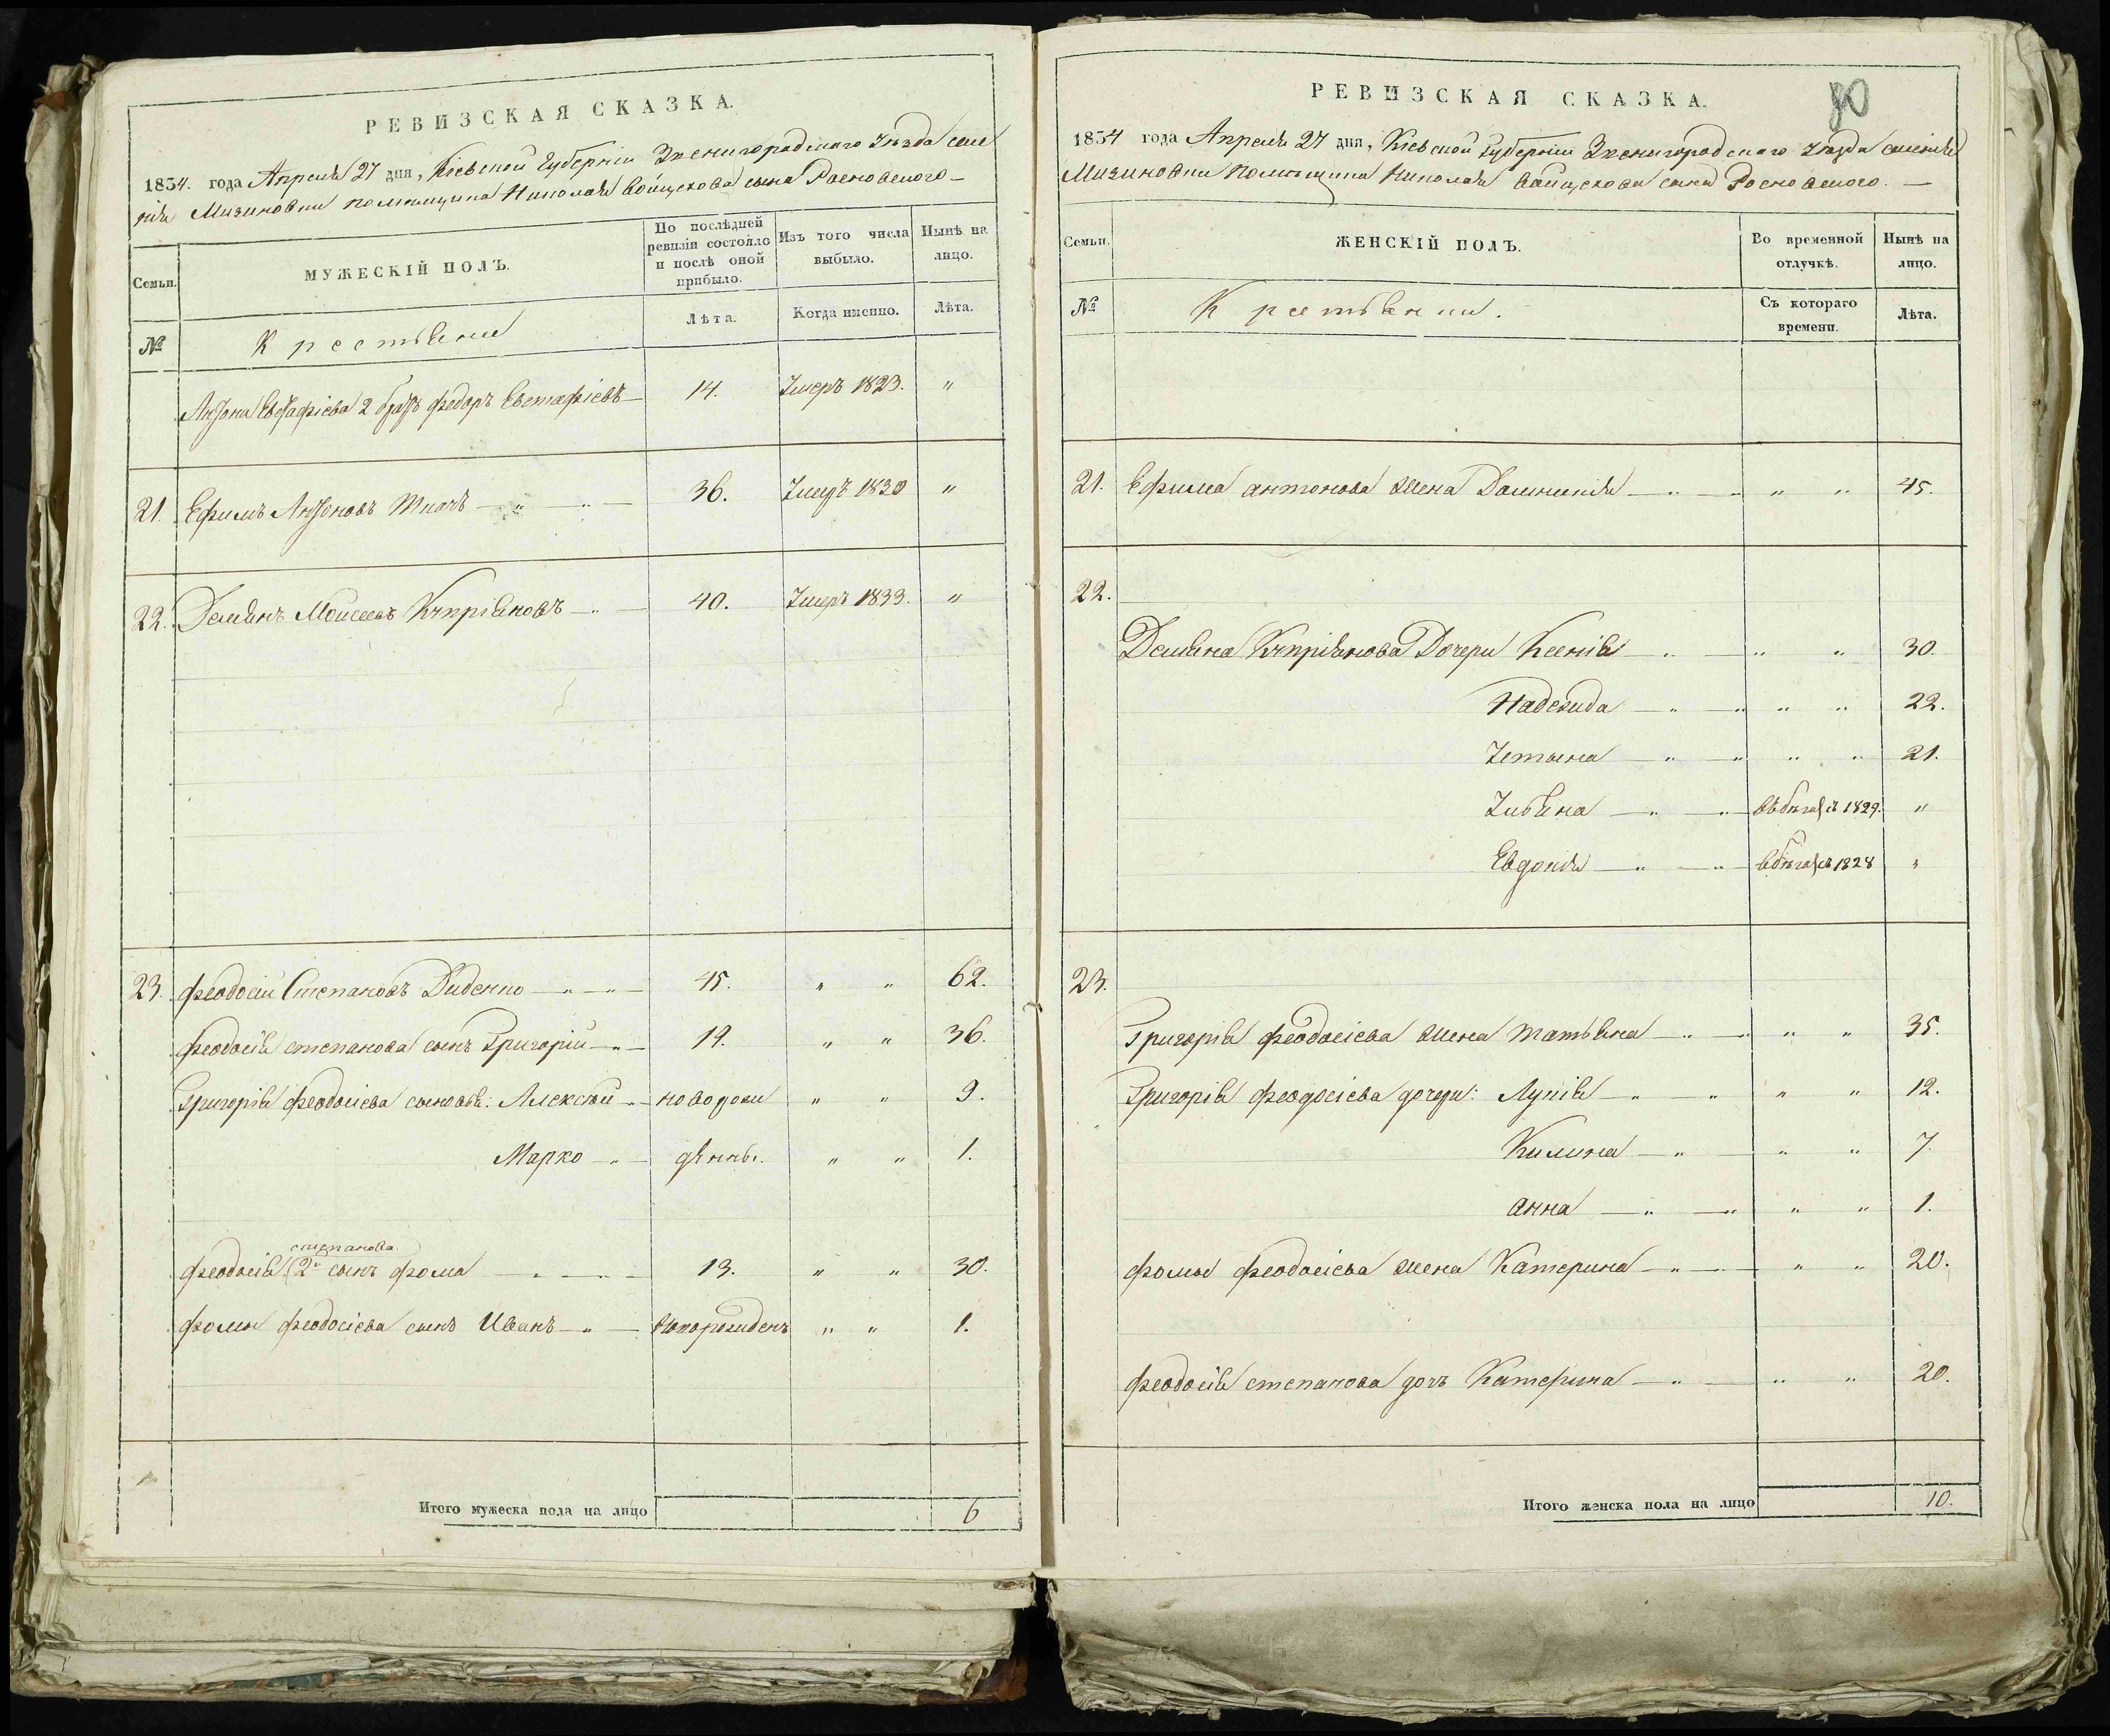 РЕВИЗСКАЯ СКАЗКА.
1834. года Апреля 27 дня, Кіевской Губерніи Звенигородскаго Уѣзда селе
нія Мизиновки помѣщика Николая Войцехова сына Росновского —
Семьи.
МУЖЕСКІЙ ПОЛЪ.
По послѣдней ревизіи состояло и послѣ оной прибыло.
Изъ того числа выбыло.
Нынѣ на лицо.
№
Крестьяне
Лѣта.
Когда именно.
Лѣта.
Антона Евстафіева 2 братъ Федоръ Евстафіевъ — 14. Умеръ 1823. "
21. Ефимъ Антоновъ Ткачь — " — " — 36. Умеръ 1830 "
22. Демянъ Моисеевъ Купріяновъ — " — 40. Умеръ 1833. "
23. Феодосій Степановъ Диденко — " — " — 45. " " 62.
Феодосія степанова сынъ Григорій — " — 19. " " 36.
Григорія феодосіева сыновья: Алексѣй " — новорож " " 9.
Марко — " — дѣнны. " " 1.
степанова
Феодосія 2й сынъ Фома — " — " — 13. " " 30.
Фомы феодосіева сынъ Иванъ — " — Новорожденъ " " 1.
Итого мужеска пола на лицо 6
80
РЕВИЗСКАЯ СКАЗКА.
1834 года Апреля 27 дня, Кіевской Губерніи Звенигородскаго Уѣзда селенія
Мизиновки Помѣщика Николая Войцехова сына Росновского. —
Семьи.
ЖЕНСКІЙ ПОЛЪ.
Во временной отлучкѣ.
Нынѣ на лицо.
№
Крестьянки.
Съ котораго времени.
Лѣта.
21. Ефима антонова жена Домникія — " — " " " 45.
22.
Демяна Купріянова Дочери Ксенія — " — " " 30.
Надежда — " — " " " 22.
Устина — " — " " " 21.
Улияна — " — " — въ бѣгахъ съ 1829. "
Евдокія — " — " — въ бѣгахъ съ 1828 "
23.
Григорія феодосіева жена татьяна — " — " " " 35.
Григорія феодосіева дочери: Лукія — " — " " " 12.
Килина — " — " " 7.
анна — " — " " " 1.
Фомы феодосіева жена Катерина — " — " — " " 20.
Феодосія степанова дочь Катерина — " — " " 20.
Итого женска пола на лицо 10.